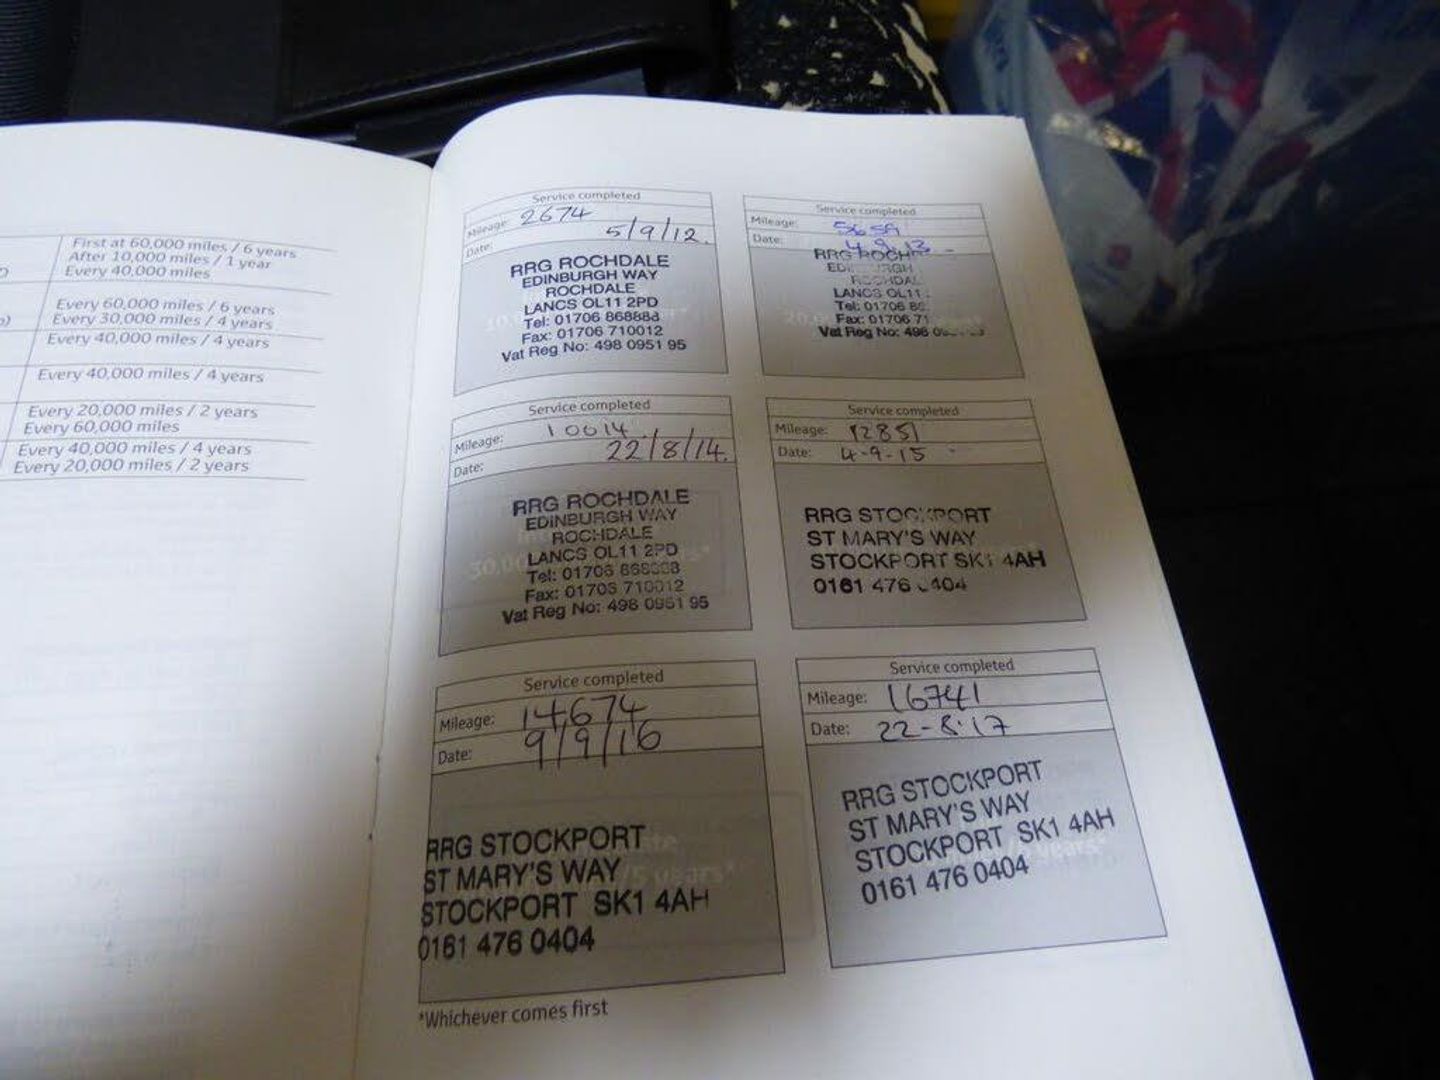 First at 60,000 miles / 6 years
After 10,000 miles / 1 year
Every 40,000 miles
Every 60,000 miles / 6 years
Every 30,000 miles / 4 years
Every 40,000 miles / 4 years
Every 40,000 miles / 4 years
Every 20,000 miles / 2 years
Every 60,000 miles
Every 40,000 miles / 4 years
Every 20,000 miles / 2 years
Service completed
Mileage: 2674
Date: 5/9/12.
RRG ROCHDALE
EDINBURGH WAY
ROCHDALE
LANCS OL11 2PD
Tel: 01706 868888
Fax: 01706 710012
Vat Reg No: 498 0951 95
Service completed
Mileage: 5659
Date: 4.9.13
RRG ROCH
LANCS OL11
Tel: 01706
Fax: 01706 71
Vat Reg No: 498
Service completed
Mileage: 10014
Date: 22/8/14.
RRG ROCHDALE
EDINBURGH WAY
ROCHDALE
LANCS OL11 2PD
Tel: 01706 868888
Fax: 01706 710012
Vat Reg No: 498 0951 95
Service completed
Mileage: 12851
Date: 4-9-15
RRG STOCKPORT
ST MARY'S WAY
STOCKPORT SK1 4AH
0161 476 0404
Service completed
Mileage: 14674
Date: 9/9/16
RRG STOCKPORT
ST MARY'S WAY
STOCKPORT SK1 4AH
0161 476 0404
Service completed
Mileage: 16741
Date: 22-8-17
RRG STOCKPORT
ST MARY'S WAY
STOCKPORT SK1 4AH
0161 476 0404
*Whichever comes first